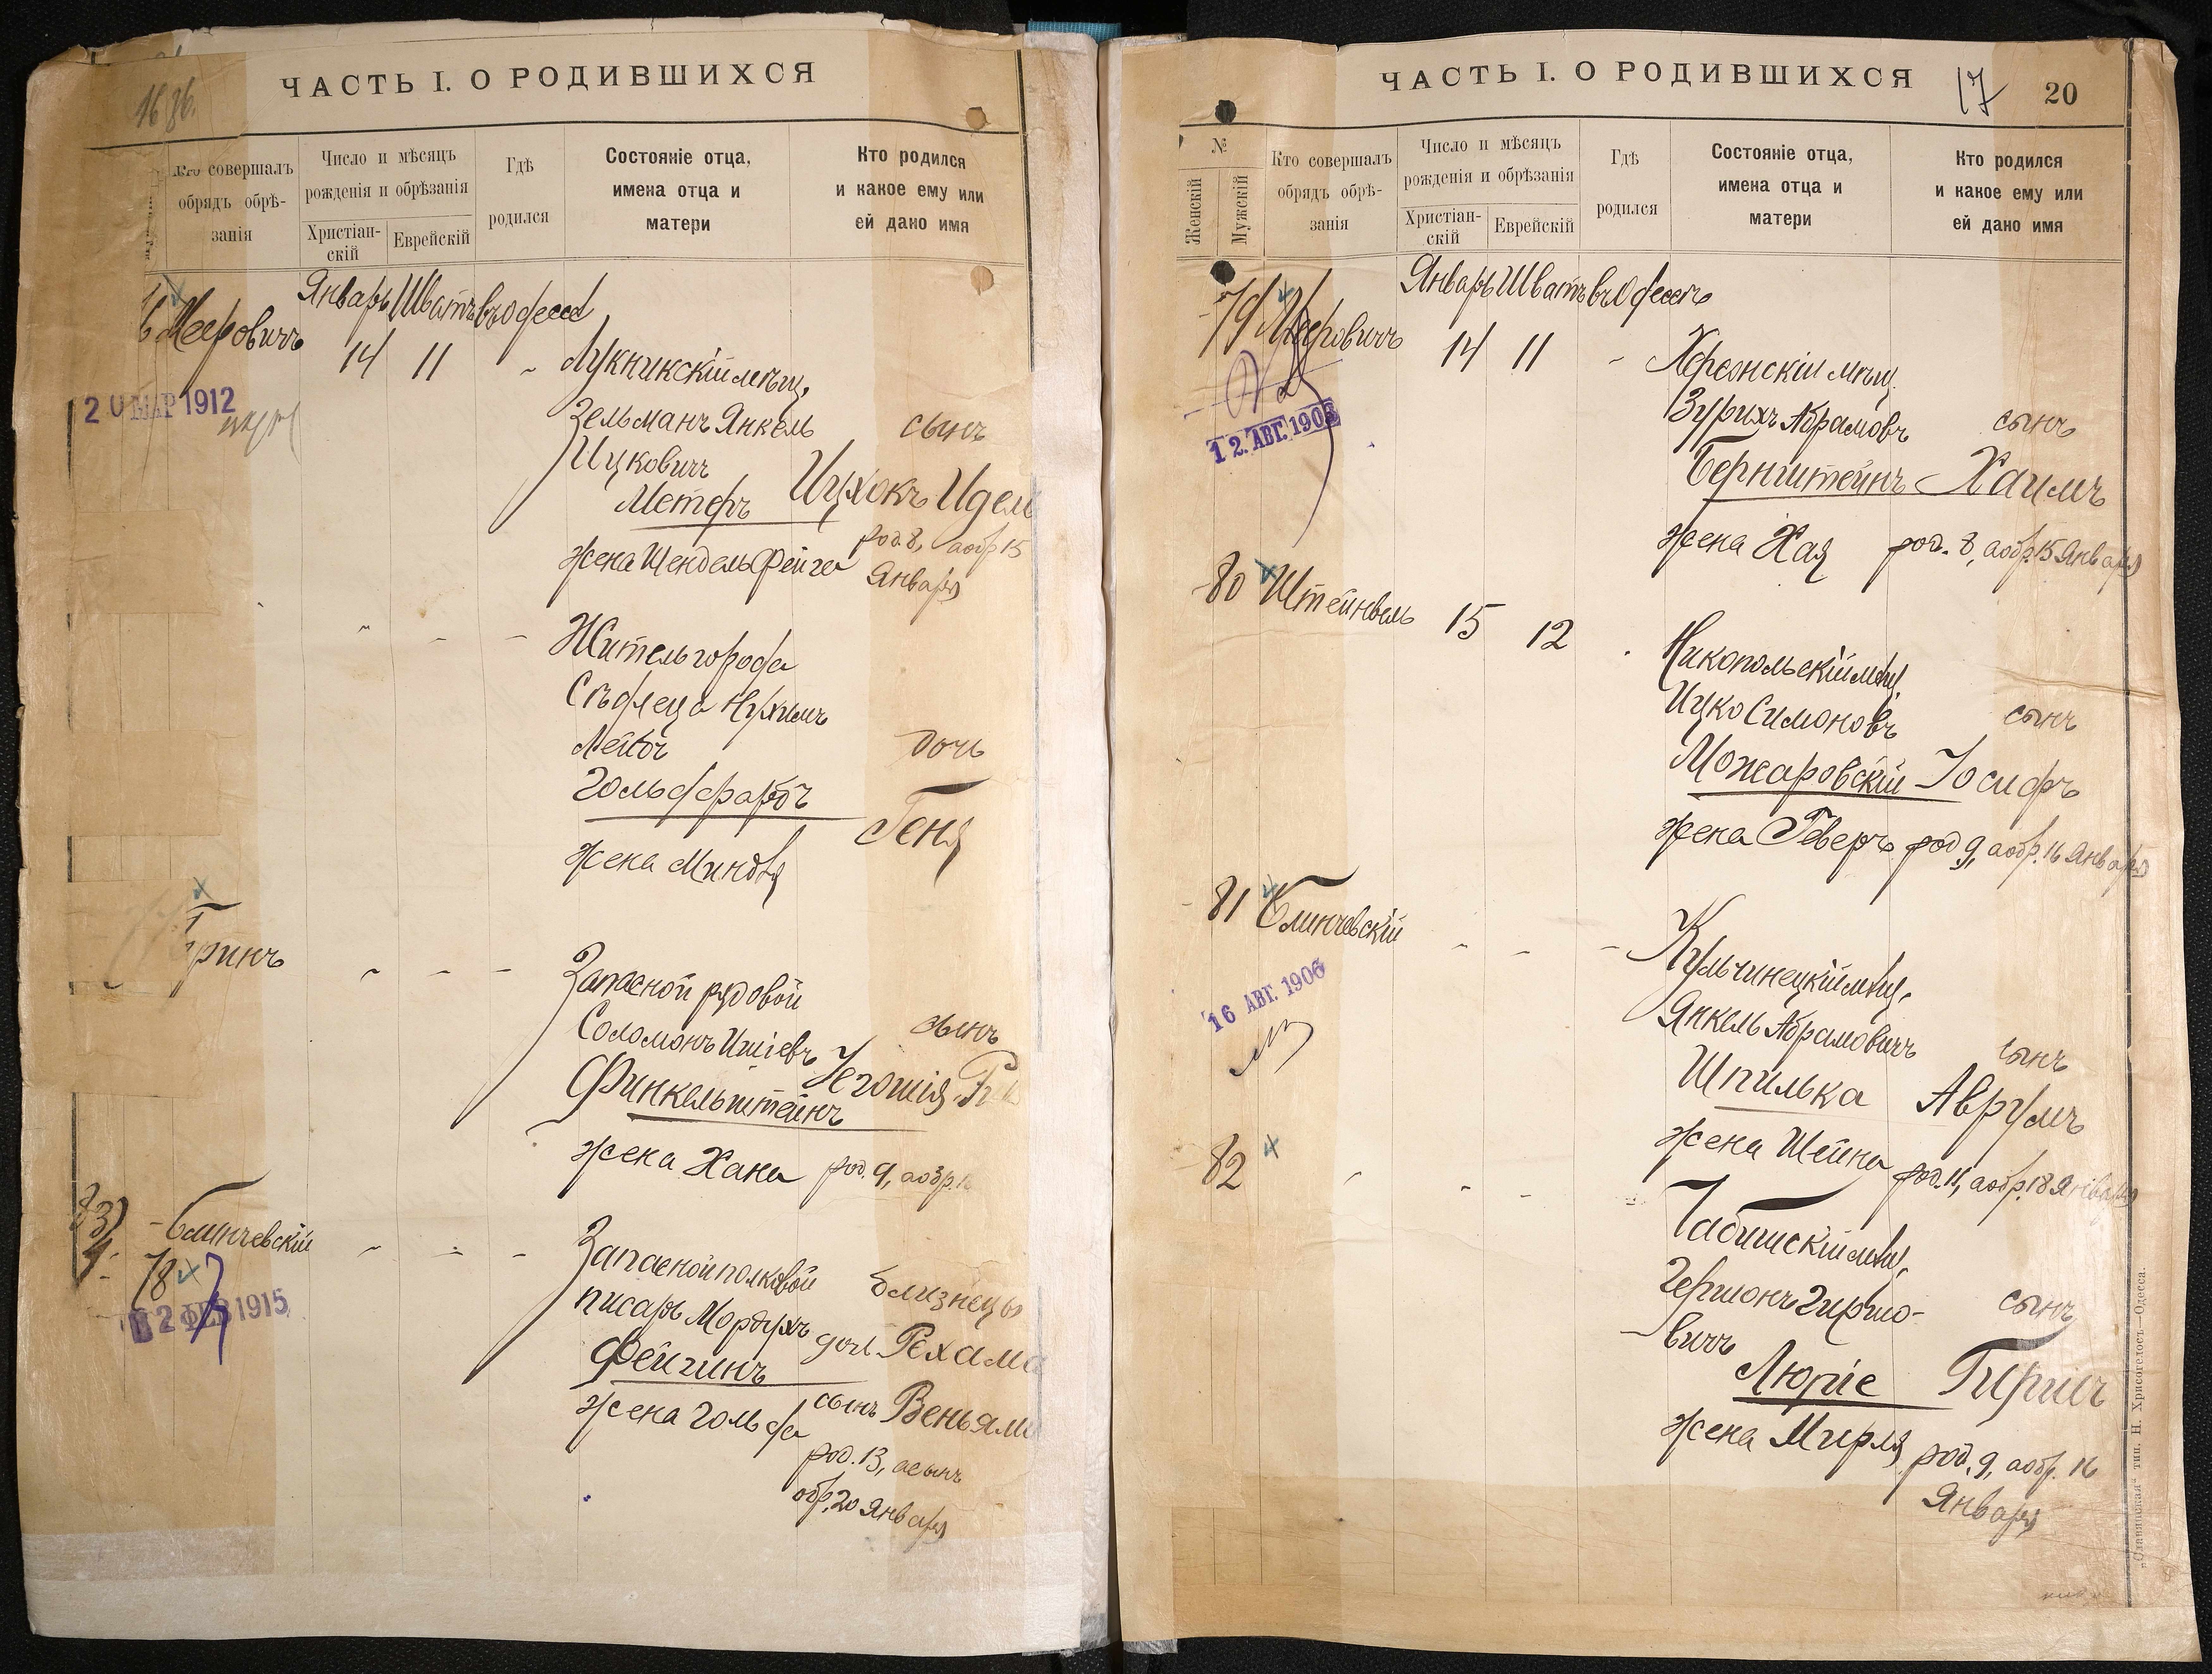 ЧАСТЬ I. О РОДИВШИХСЯ
Кто совершалъ
обрядъ обрѣ-
занія
Число и мѣсяцъ
рожденія и обрѣзанія
Христіан-
скій
Еврейскій
Гдѣ
родился
Состояніе отца,
имена отца и
матери
Кто родился
и какое ему или
ей дано имя
Январь Шватъ въ Одессѣ
Мееровичъ
14 11
20 МАР 1912
Лукникскій мѣщ.
Зельманъ Янкель
Ицковичъ
Метфъ
жена Шендель Фейга
сынъ
Ицхокъ Идель
род. 8, а обр. 15
Января
Житель города
Сѣдлеца Нухимъ
Лейба
Гольдфарбъ
жена Миндля
дочь
Геня
Гринъ
Запасной рядовой
Соломонъ
Финкельштейнъ
жена Хана
сынъ
род. 9, а обр. 16
83
Блинчевскій
78
2 ФЕВ 1915
Запасной полковой
писарь Мордухъ
Фейгинъ
жена Гольда
близнецы
дочь Рехама
сынъ Веньями
род. 13, а сынъ
обр. 20 Января
ЧАСТЬ I. О РОДИВШИХСЯ
17
20
№
Женскій
Мужскій
Кто совершалъ
обрядъ обрѣ-
занія
Число и мѣсяцъ
рожденія и обрѣзанія
Христіан-
скій
Еврейскій
Гдѣ
родился
Состояніе отца,
имена отца и
матери
Кто родился
и какое ему или
ей дано имя
Январь Шватъ въ Одессѣ
79 Мееровичъ
14 11
12. АВГ. 1903
Херсонскій мѣщ.
Зурихъ Абрамовъ
Бернштейнъ
жена Хая
сынъ
Хаимъ
род. 8, а обр. 15 Января
80 Штейнвель
15 12
Никопольскій мѣщ.
Ицко Симоновъ
Можаровскій
жена Геверъ
сынъ
Іосифъ
род 9, а обр. 16 Января
81 Блинчевскій
16 АВГ. 1906
Кульчинецкій мѣщ.
Янкель Абрамовичъ
Шпилька
жена Шейна
сынъ
Аврумъ
род. 11, а обр. 18 Января
82
Табишскій мѣщ.
Гершонъ Гиршо-
вичъ
Люріе
жена Мирля
сынъ
Гиршъ
род. 9, а обр. 16
Января
„Славянская“ тип. Н. Хрисогелосъ—Одесса.